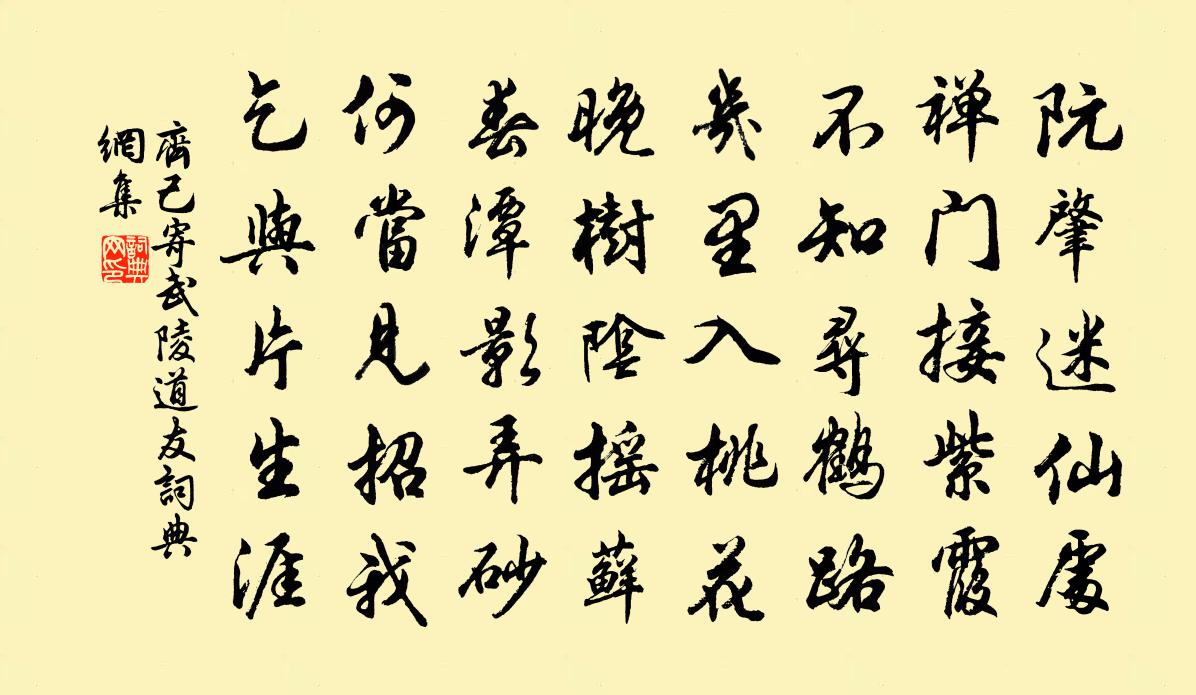 阮肇迷仙處
禅门接紫霞
不知尋鶴路
幾里入桃花
晚樹陰摇蘚
春潭影弄砂
何當見招我
乞與片生涯
齊己寄武陵道友詞典
網集
詞典网印